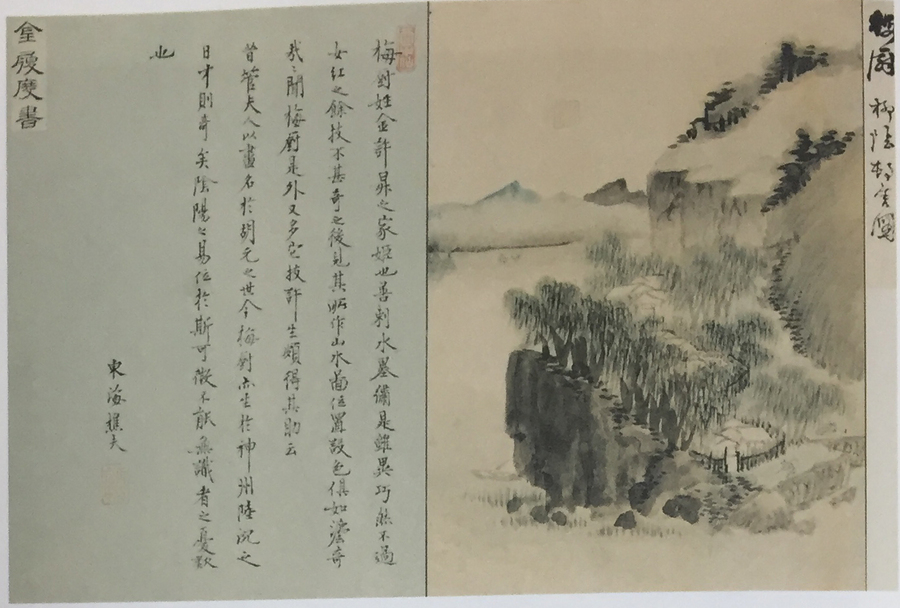 梅厨 柳陰圖
梅厨姓金許昇之家姬也善刺水墨繡是雖異巧然不過
女紅之餘技不甚奇之後見其所作山水啚位置設色俱如澹奇
哉之聞梅厨是外又多它技許生頗得其助云
昔管夫人以畫名於胡元之世今梅厨亦生於神州陸沉之
日才則奇矣陰陽之易位於斯可徵不能無識者之憂歎
也
東海樵夫
金履度書